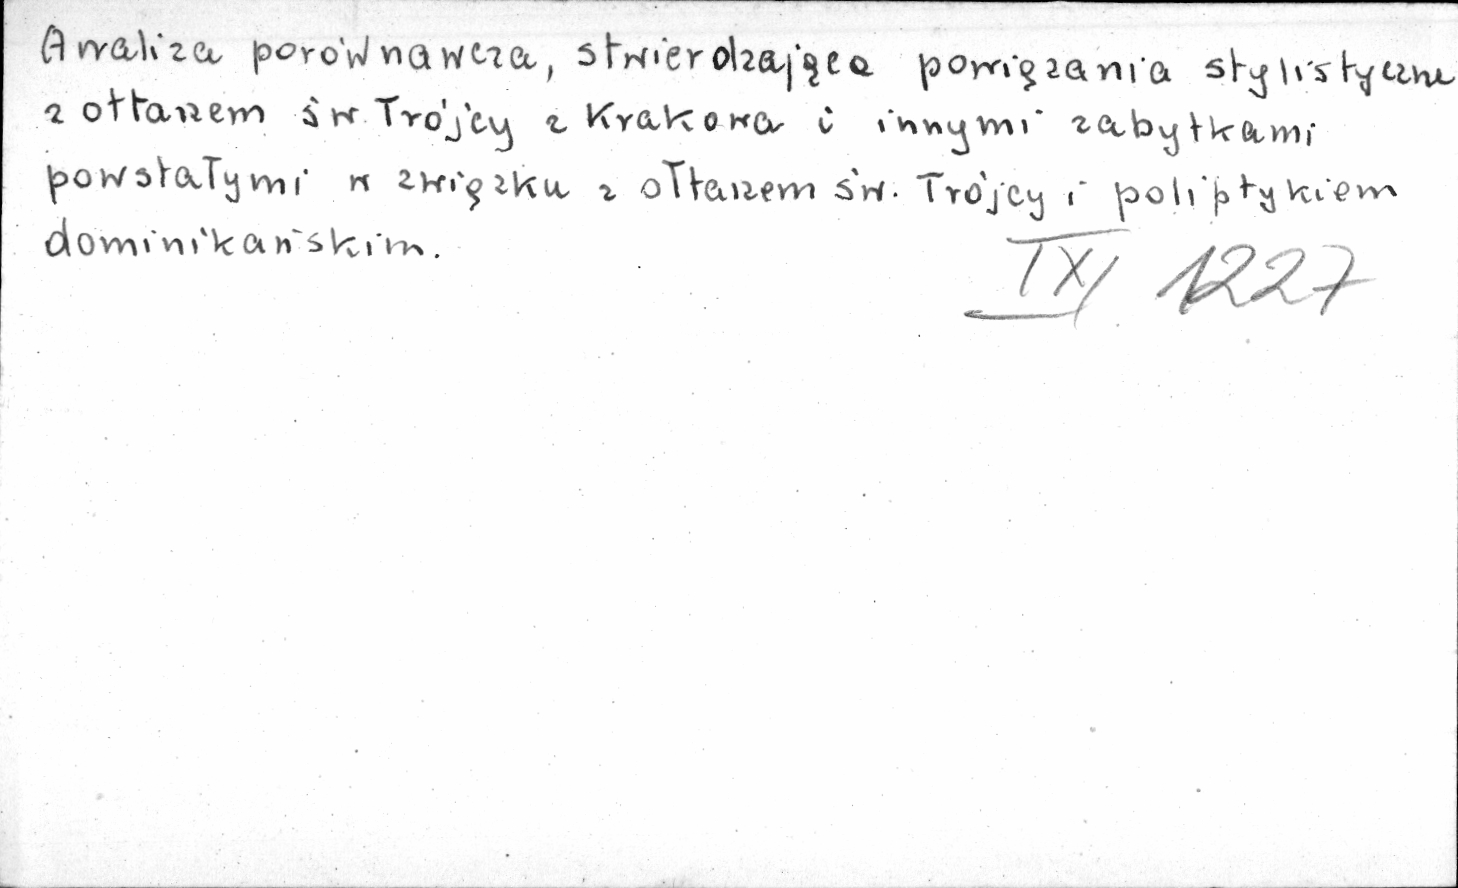 Analiza porównawcza, stwierdzająca powiązania stylistyczne
z ołtarzem św. Trójcy z Krakowa i innymi zabytkami
powstałymi w związku z ołtarzem św. Trójcy i poliptykiem
dominikańskim.
IXI 1227